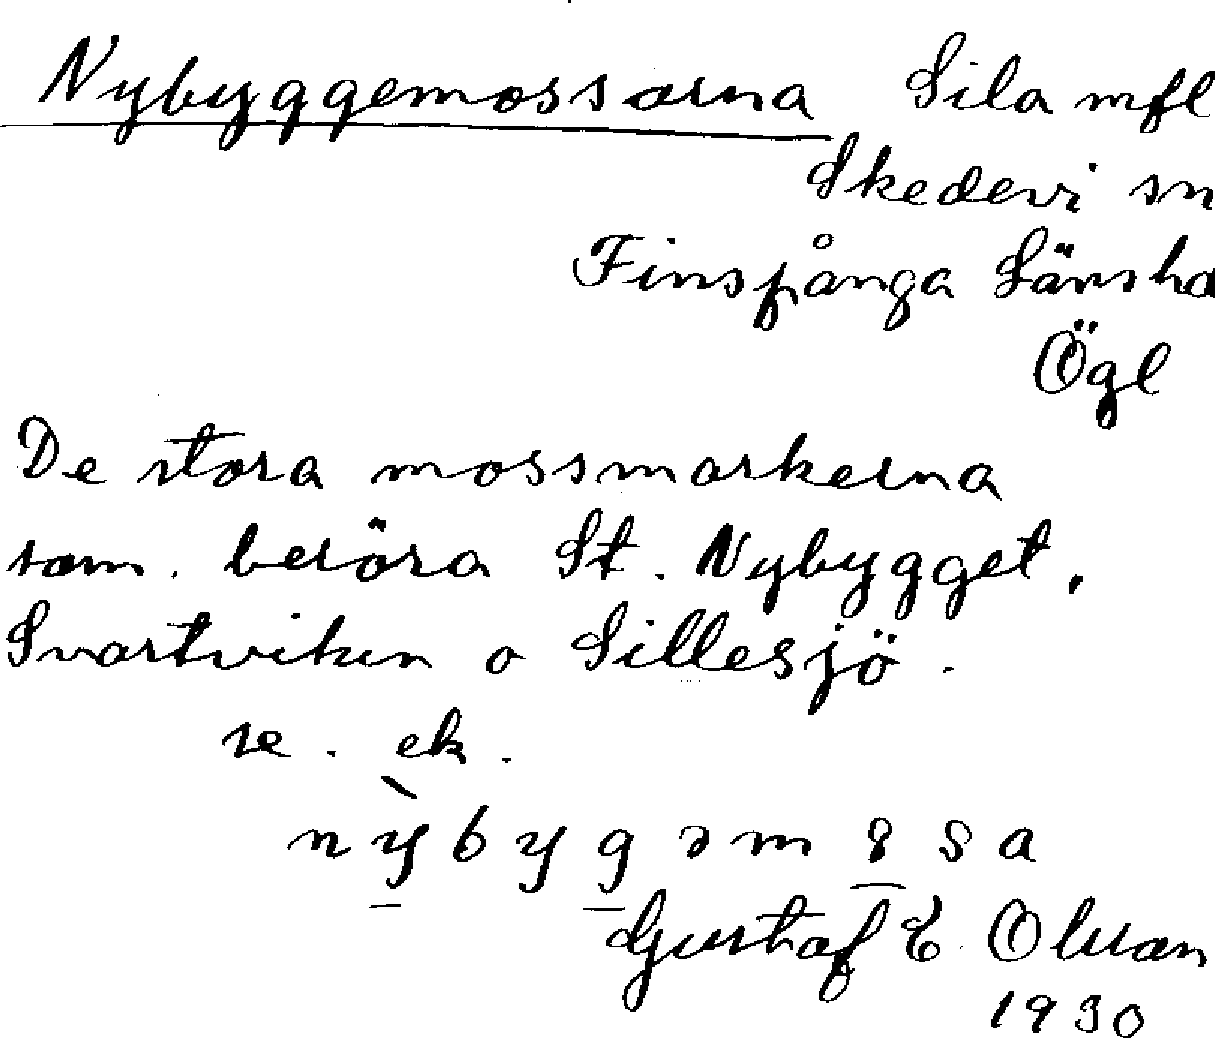 Nybyggemossarna Sila mfl
Skedevi sn
Finspånga Länshd
Ögl
De stora mossmarkerna
som. beröra St. Nybygget,
Svartviken o Sillesjö.
se. ek.
nybygəm8sa
Gustaf E. Olsson
1930